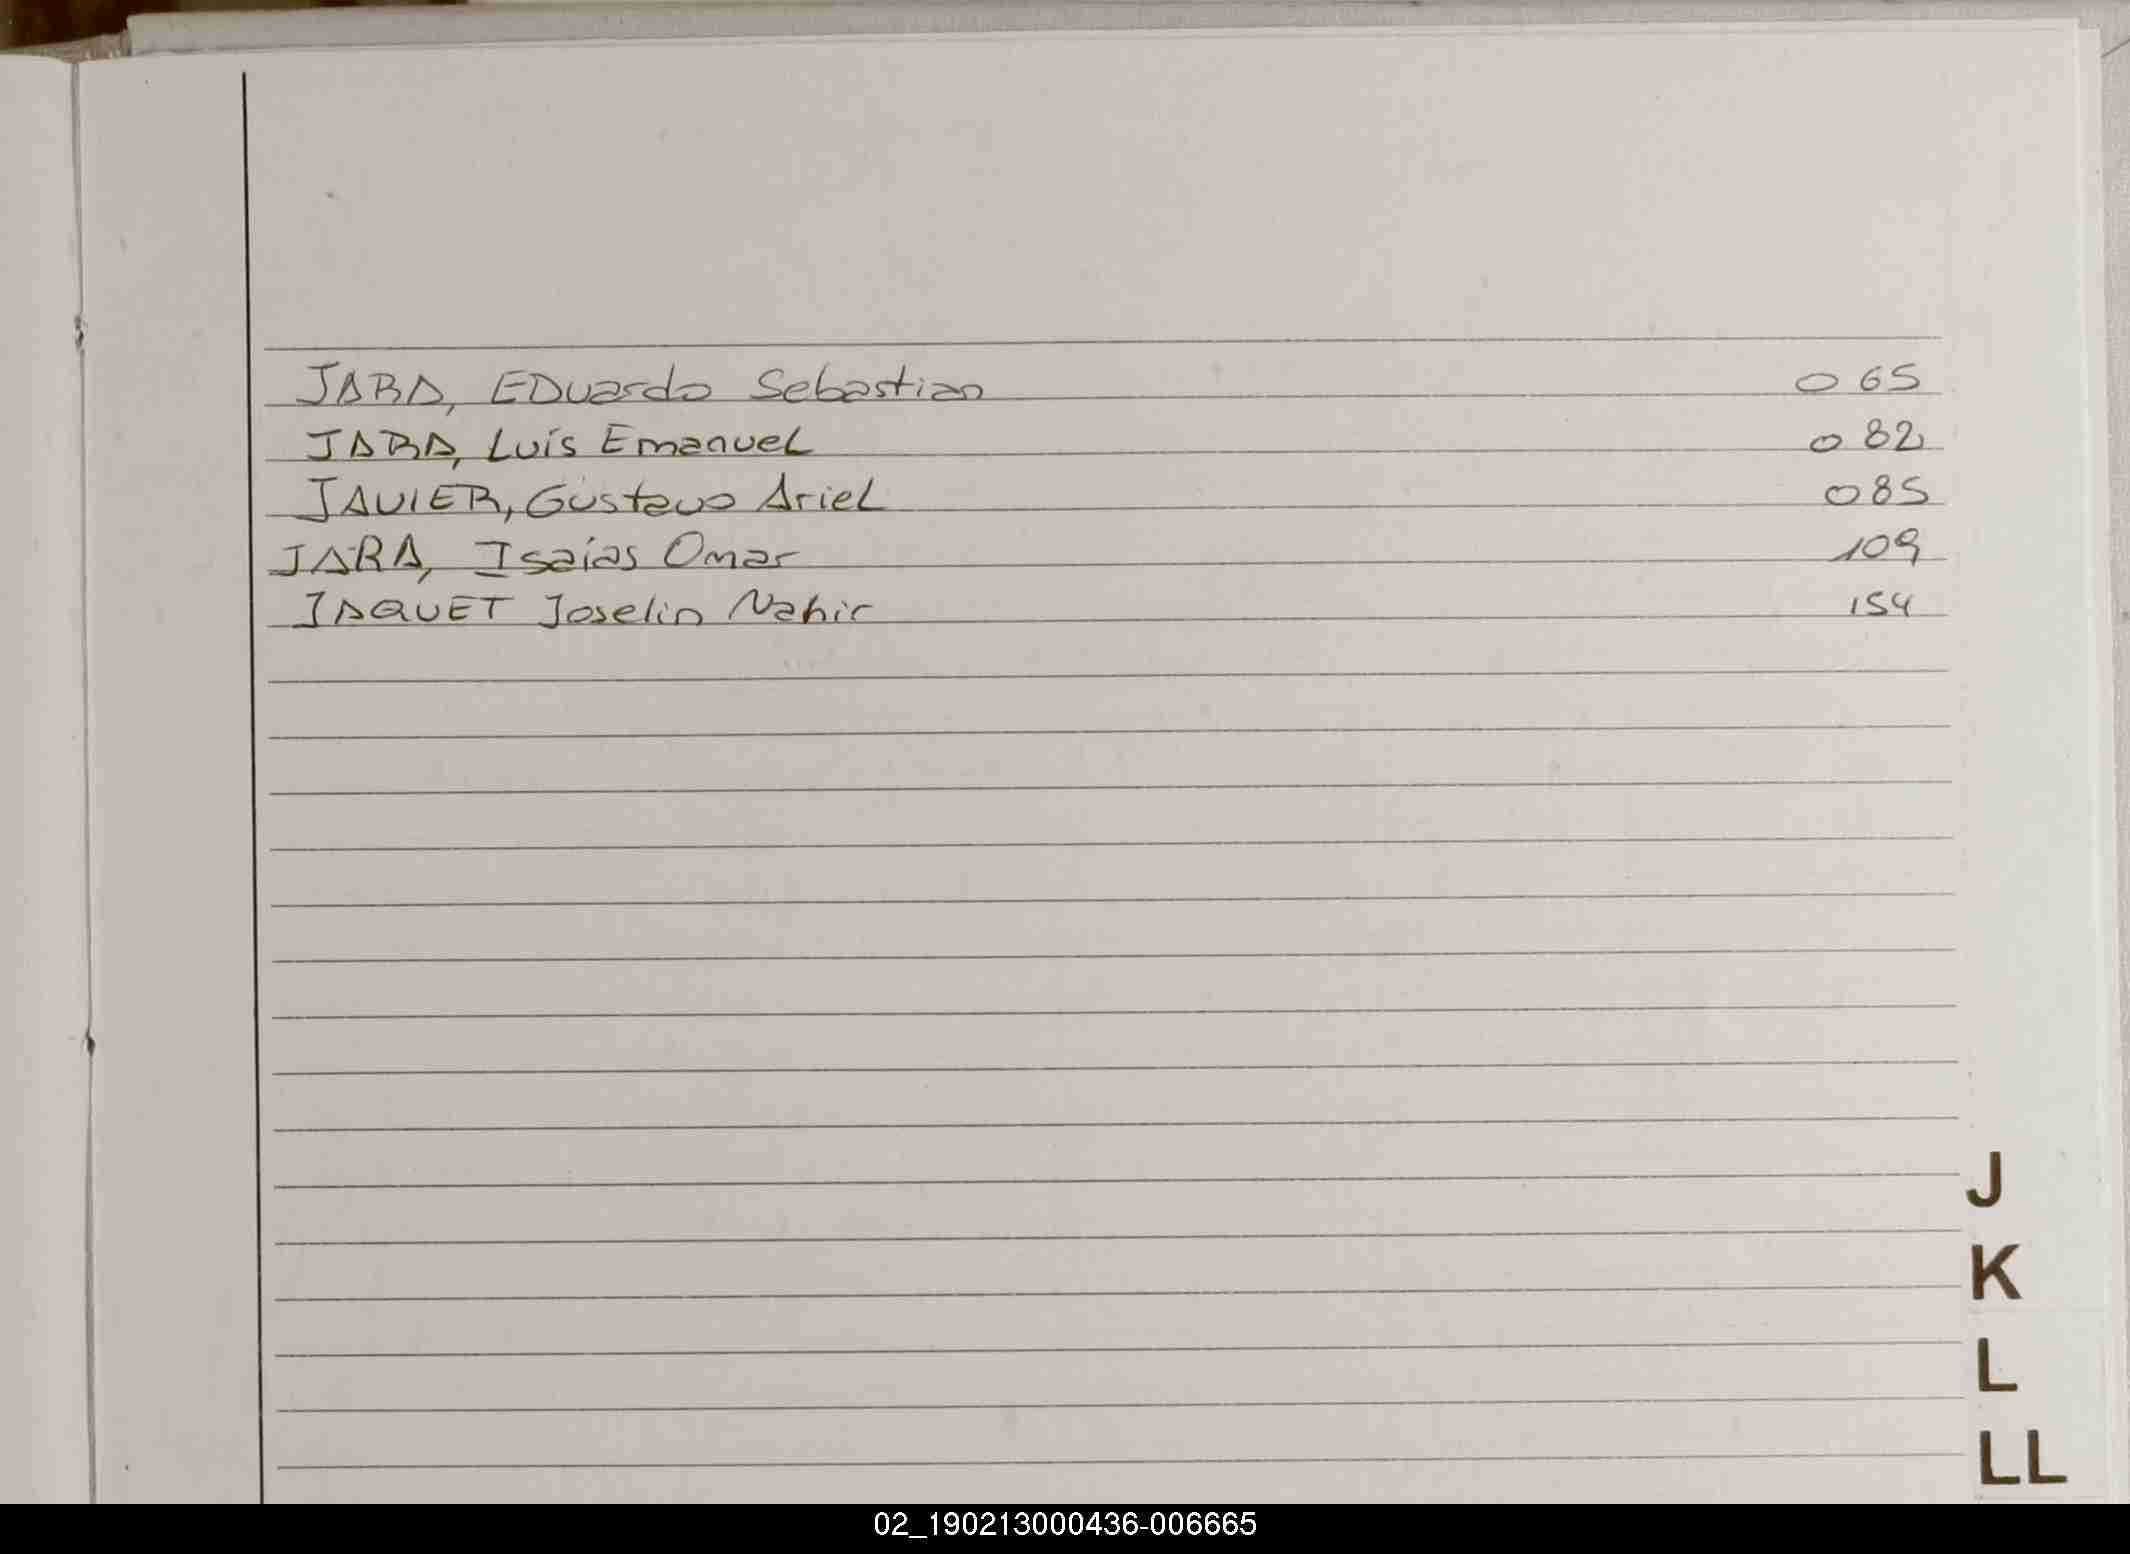 JARA, EDuardo Sebastian 065
JARA, Luis Emanuel 082
JAVIER, Gustavo Ariel 085
JARA, Isaías Omar 109
JAQUET Joselin Nahir 154
J
K
L
LL
02_190213000436-006665